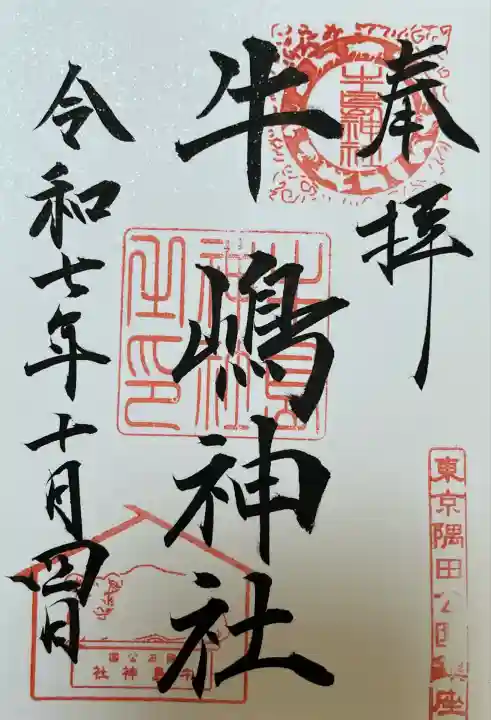 奉拝
牛嶋神社
令和七年十月四日
牛嶋神社
牛嶋神社之印
東京隅田公園鎮座
牛嶋神社